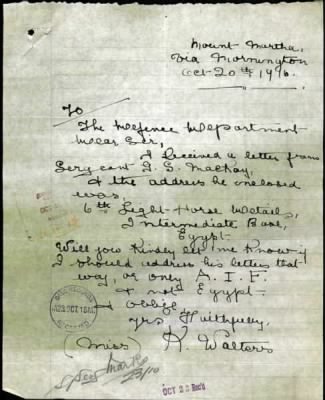 Mount Martha,
Via Mornington
Oct 20th 1916.
To
The Defence Department
Dear Sir,
I received a letter from
Sergeant D. S. MacKay,
& the address he enclosed
was,
6th Light Horse Details,
Intermediate Base,
Egypt
Will you Kindly let me Know if
I should address his letters that
way or only A. I. F.
& not Egypt
& oblige
yrs Faithfully,
(Miss) K. Walters
23/10
OCT 23 Rec'd